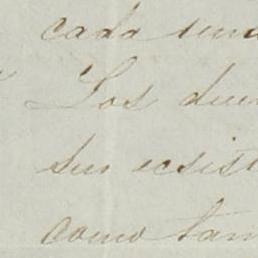 cada una
Los due
sus ecsist
como tam